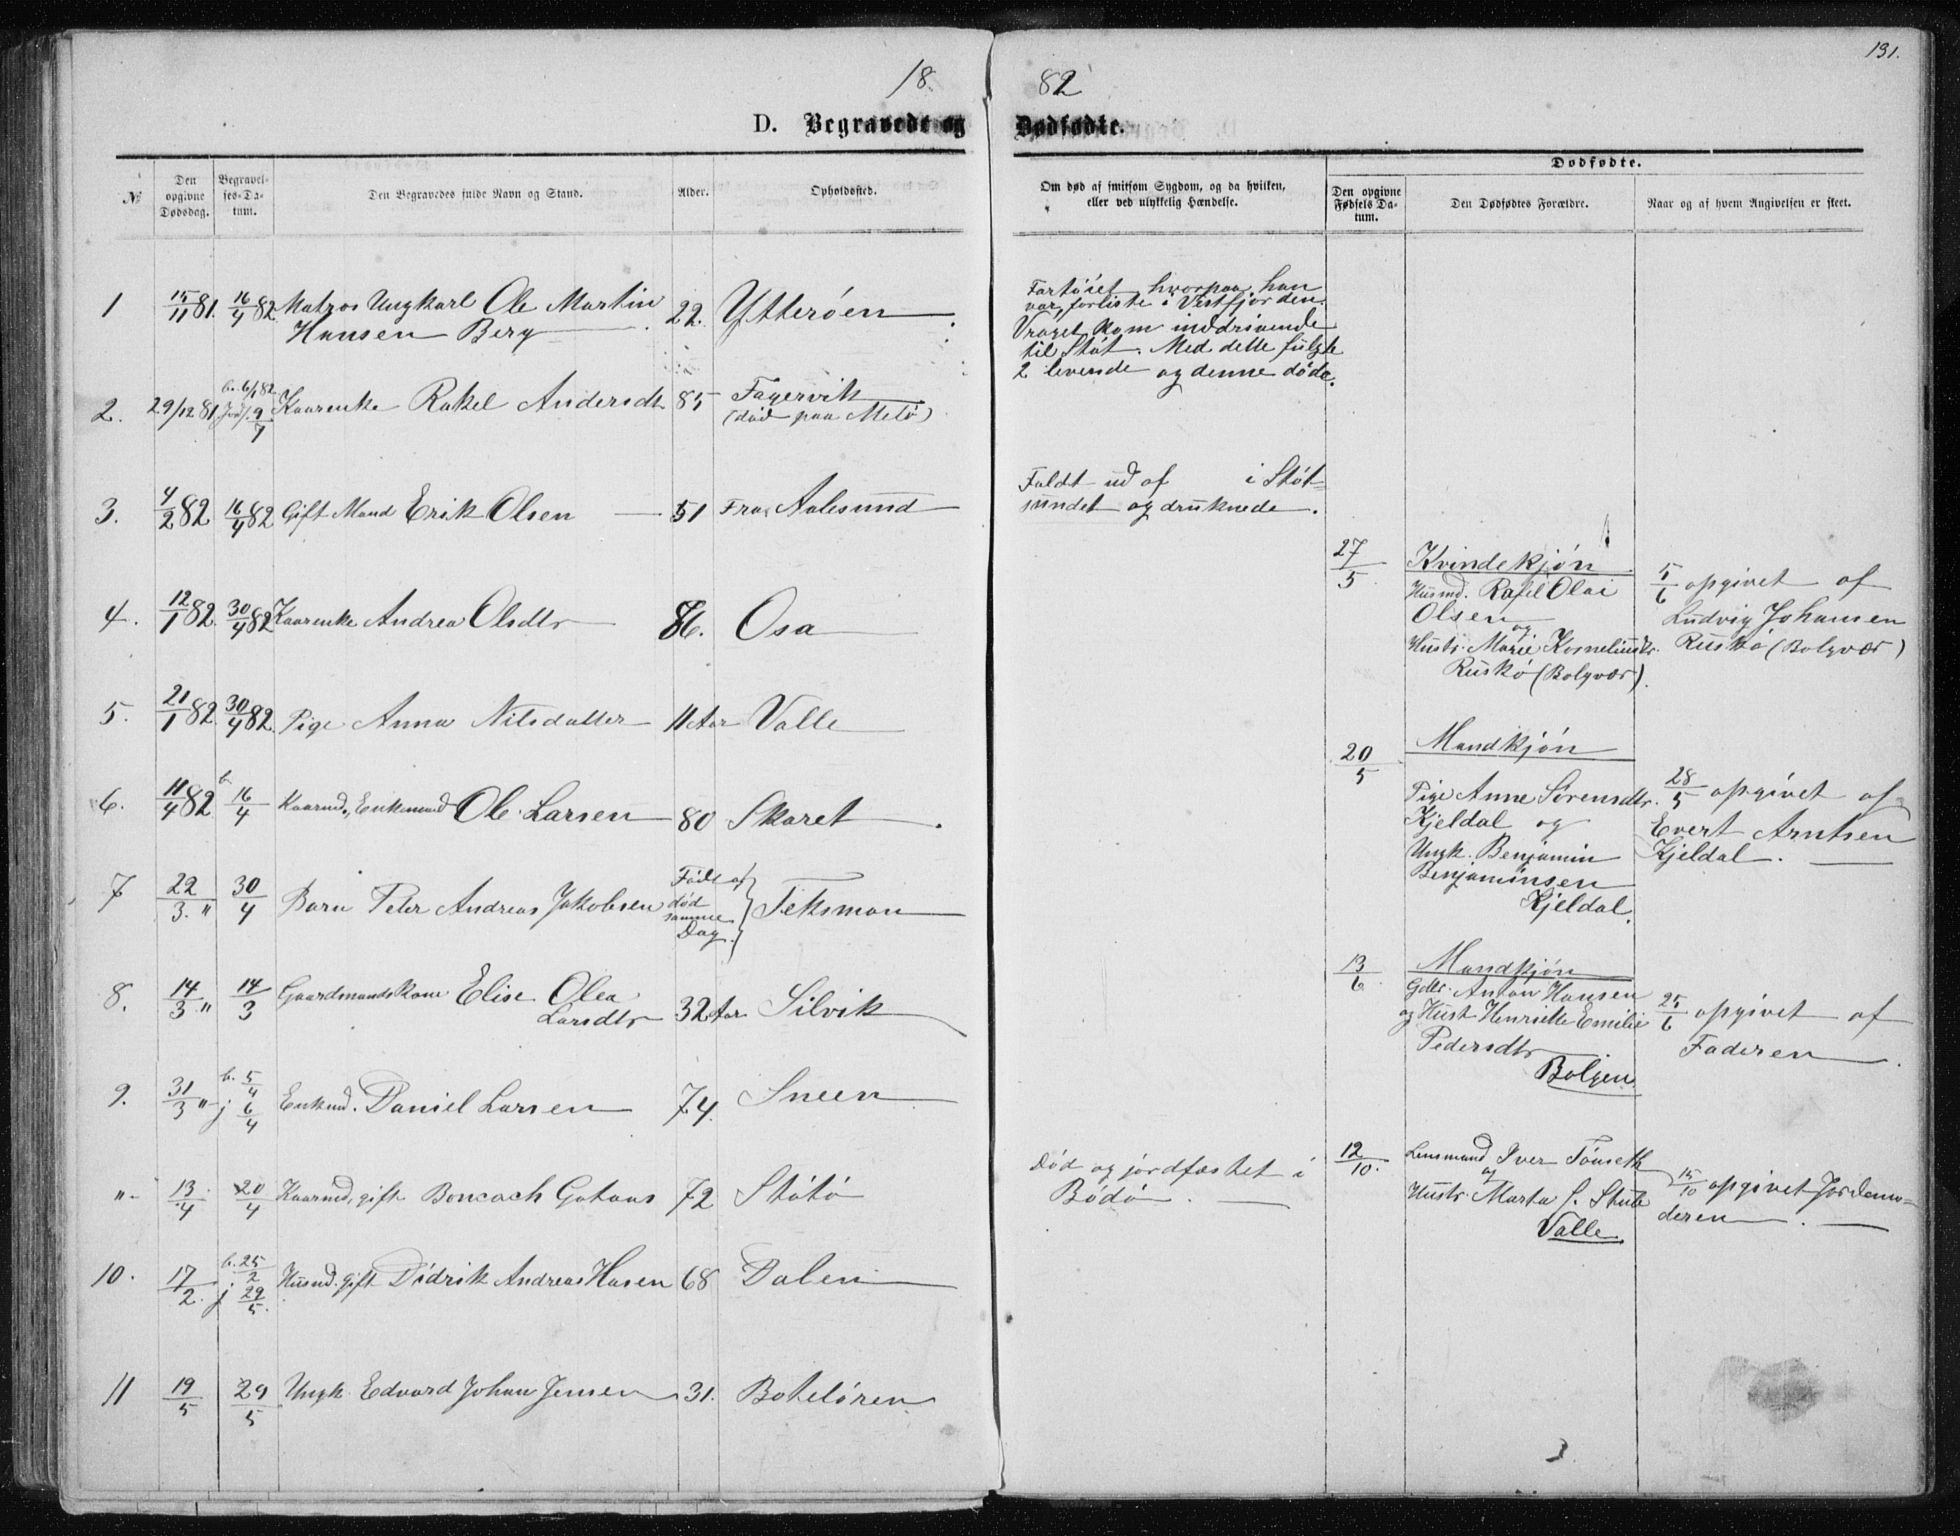 18 82
131.
D. Begravede og Dødfødte.
№
Den opgivne Dødsdag.
Begravelses-Datum.
Den Begravedes fulde Navn og Stand.
Alder.
Opholdssted.
Om død af smitsom Sygdom, og da hvilken,
eller ved ulykkelig Hændelse.
Dødfødte.
Den opgivne Fødsels Datum.
Den Dødfødtes Forældre.
Naar og af hvem Angivelsen er skeet.
1 15/11 81. 16/4 82. Matros Ungkarl Ole Martin
Hansen Berg 22. Ytterøen
Fartøiet hvorpaa han
var, forliste i Vestfjorden.
Vraget kom inddrivende
til Støt. Med dette fulgte
2 levende og denne døde.
2. 29/12 81 b. 6/1 82
Kaarenke Rakel Andersdtr 85 Fagervik
(død paa Melø)
3. 4/2 82 16/4 82 Gift Mand Erik Olsen 51 Fra Aalesund
Faldt ud af i Støt-
sundet og druknede.
4. 12/1 82. 30/4 82 Kaarenke Andrea Olsdtr 86. Osa
5. 21/1 82 30/4 82. Pige Anna Nilsdatter 11 Aar Valle
6. 11/4 82 b. 16/4 Kaarmd., Enkemand Ole Larsen 80 Skaret
7 22/3 " 30/4 Barn Peter Andreas Jakobsen
Født og
død
samme
Dag.
Teksmon
8. 14/3 " 14/3 Gaardmandskone Elise Olea
Larsdtr 32 Aar Silvik
9. 31/3 " b. 5/4
j 6/4 Enkemd. Daniel Larsen 74. Sneen
"- 13/4 20/4 Kaarmd, gift 72 Støtø
Død og jordfæstet i
Bodø.
10. 17/2. b. 25/2
j 29/5. Husmd. gift Didrik Andreas Hasen 68 Dalen
11 19/5 29/5 Ungk. Edvard Johan Jensen 31. Boteløren
27/5 Kvindekjøn
Husmd. Rafel Olai
Olsen
og
Hustr. Marie Korneliusdtr.
Ruskø (Bolgvær).
5/6 opgivet af
Ludvig Johansen
Ruskø (Bolgvær)
20/5 Mandkjøn
Pige Anne Sørensdtr.
Kjeldal og
Ungk. Benjamin
Benjaminsen
Kjeldal.
28/5 opgivet af
Evert Arntsen
Kjeldal.
13/6 Mandkjøn
Gdbr. Anton Hansen
og Hust. Henriette Emilie
Pedersdtr
Bolgen
25/6 opgivet af
Faderen
12/10. Lensmand Iver Tønseth
og
Hustr. Marta
Valle
15/10 opgivet Jordemo-
deren.